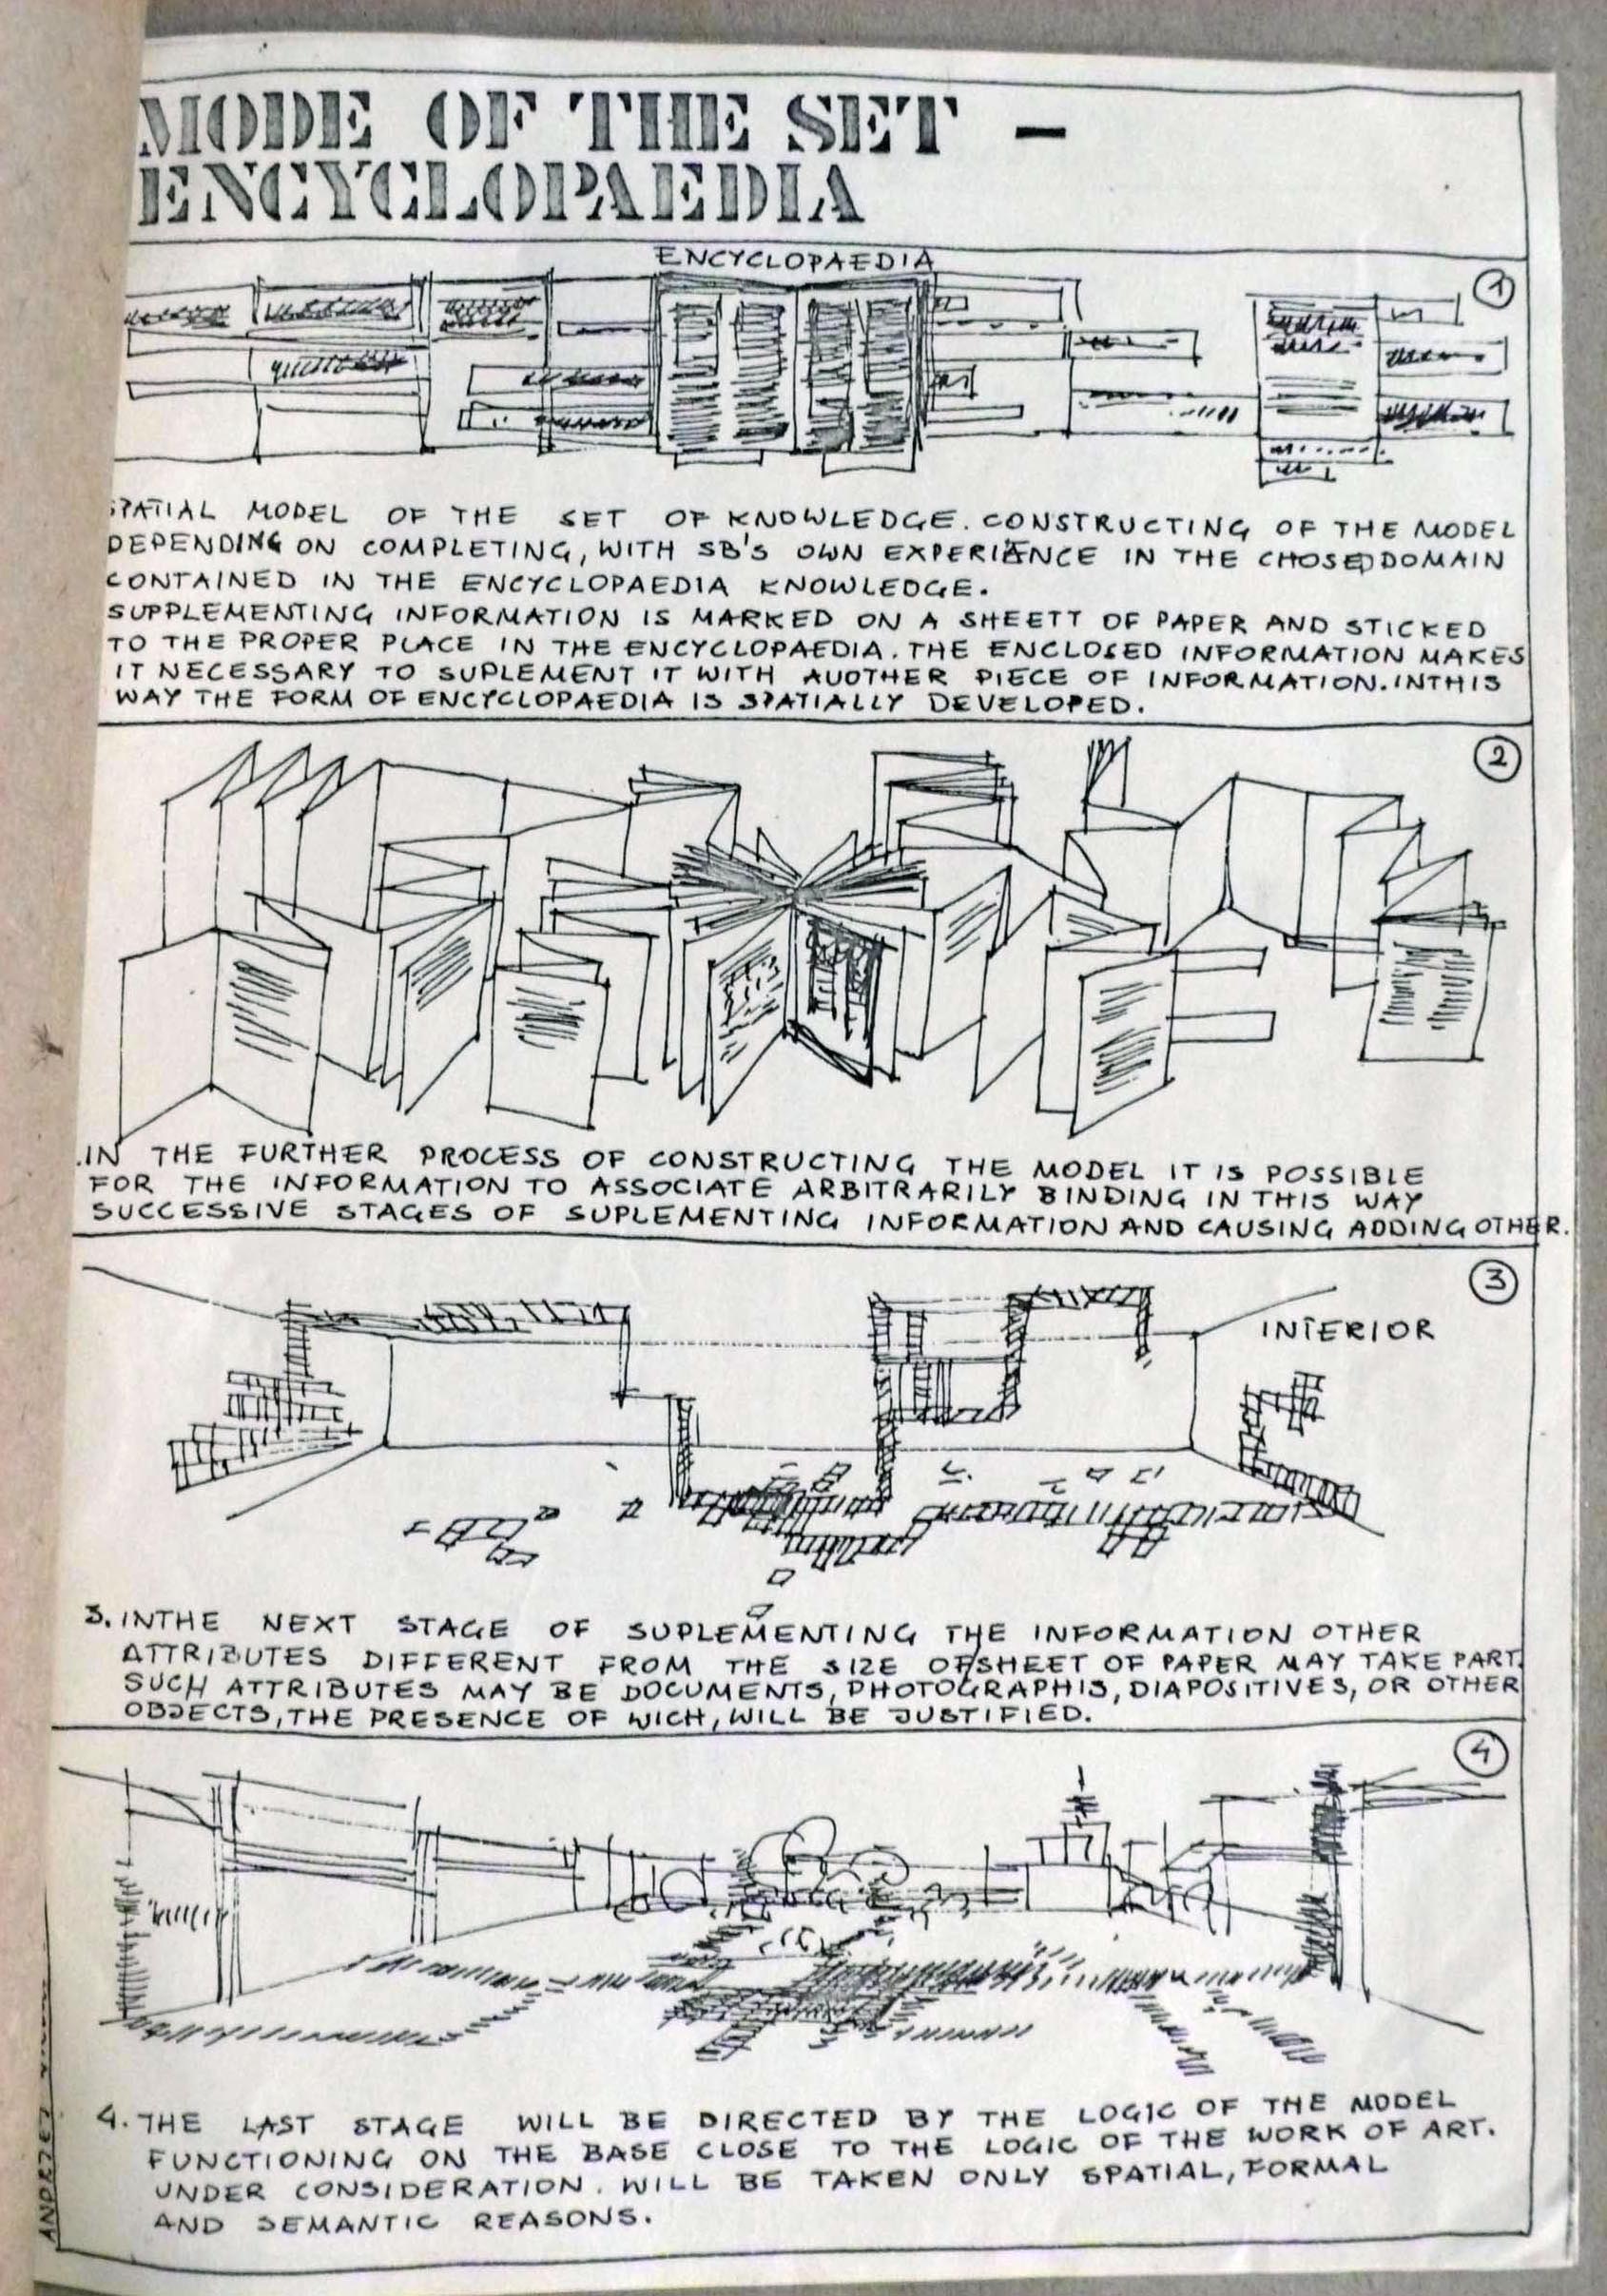 MODE OF THE SET –
ENCYCLOPAEDIA
ENCYCLOPAEDIA
1
SPATIAL MODEL OF THE SET OF KNOWLEDGE. CONSTRUCTING OF THE MODEL
DEPENDING ON COMPLETING, WITH SB'S OWN EXPERIENCE IN THE CHOSED DOMAIN
CONTAINED IN THE ENCYCLOPAEDIA KNOWLEDGE.
SUPPLEMENTING INFORMATION IS MARKED ON A SHEETT OF PAPER AND STICKED
TO THE PROPER PLACE IN THE ENCYCLOPAEDIA. THE ENCLOSED INFORMATION MAKES
IT NECESSARY TO SUPLEMENT IT WITH AUOTHER PIECE OF INFORMATION. INTHIS
WAY THE FORM OF ENCYCLOPAEDIA IS SPATIALLY DEVELOPED.
2
.IN THE FURTHER PROCESS OF CONSTRUCTING THE MODEL IT IS POSSIBLE
FOR THE INFORMATION TO ASSOCIATE ARBITRARILY BINDING IN THIS WAY
SUCCESSIVE STAGES OF SUPLEMENTING INFORMATION AND CAUSING ADDING OTHER.
3
INTERIOR
3. INTHE NEXT STAGE OF SUPLEMENTING THE INFORMATION OTHER
ATTRIBUTES DIFFERENT FROM THE SIZE OF/SHEET OF PAPER MAY TAKE PART.
SUCH ATTRIBUTES MAY BE DOCUMENTS, PHOTOGRAPHIS, DIAPOSITIVES, OR OTHER
OBJECTS, THE PRESENCE OF WICH, WILL BE JUSTIFIED.
4
4. THE LAST STAGE WILL BE DIRECTED BY THE LOGIC OF THE MODEL
FUNCTIONING ON THE BASE CLOSE TO THE LOGIC OF THE WORK OF ART.
UNDER CONSIDERATION. WILL BE TAKEN ONLY SPATIAL, FORMAL
AND SEMANTIC REASONS.
ANDRZEJ